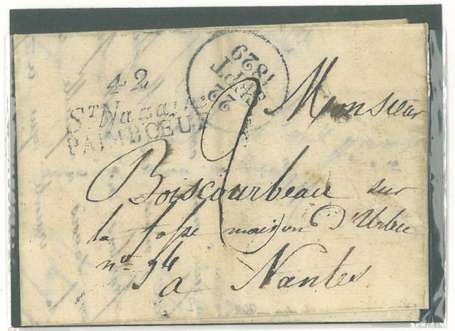 42
St Nazaire
PAIMBOEUF
22
SEPT
1829
2
Monsieur
Boiscourbeau sur
la fosse maison d'Urbee
n° 34
a Nantes